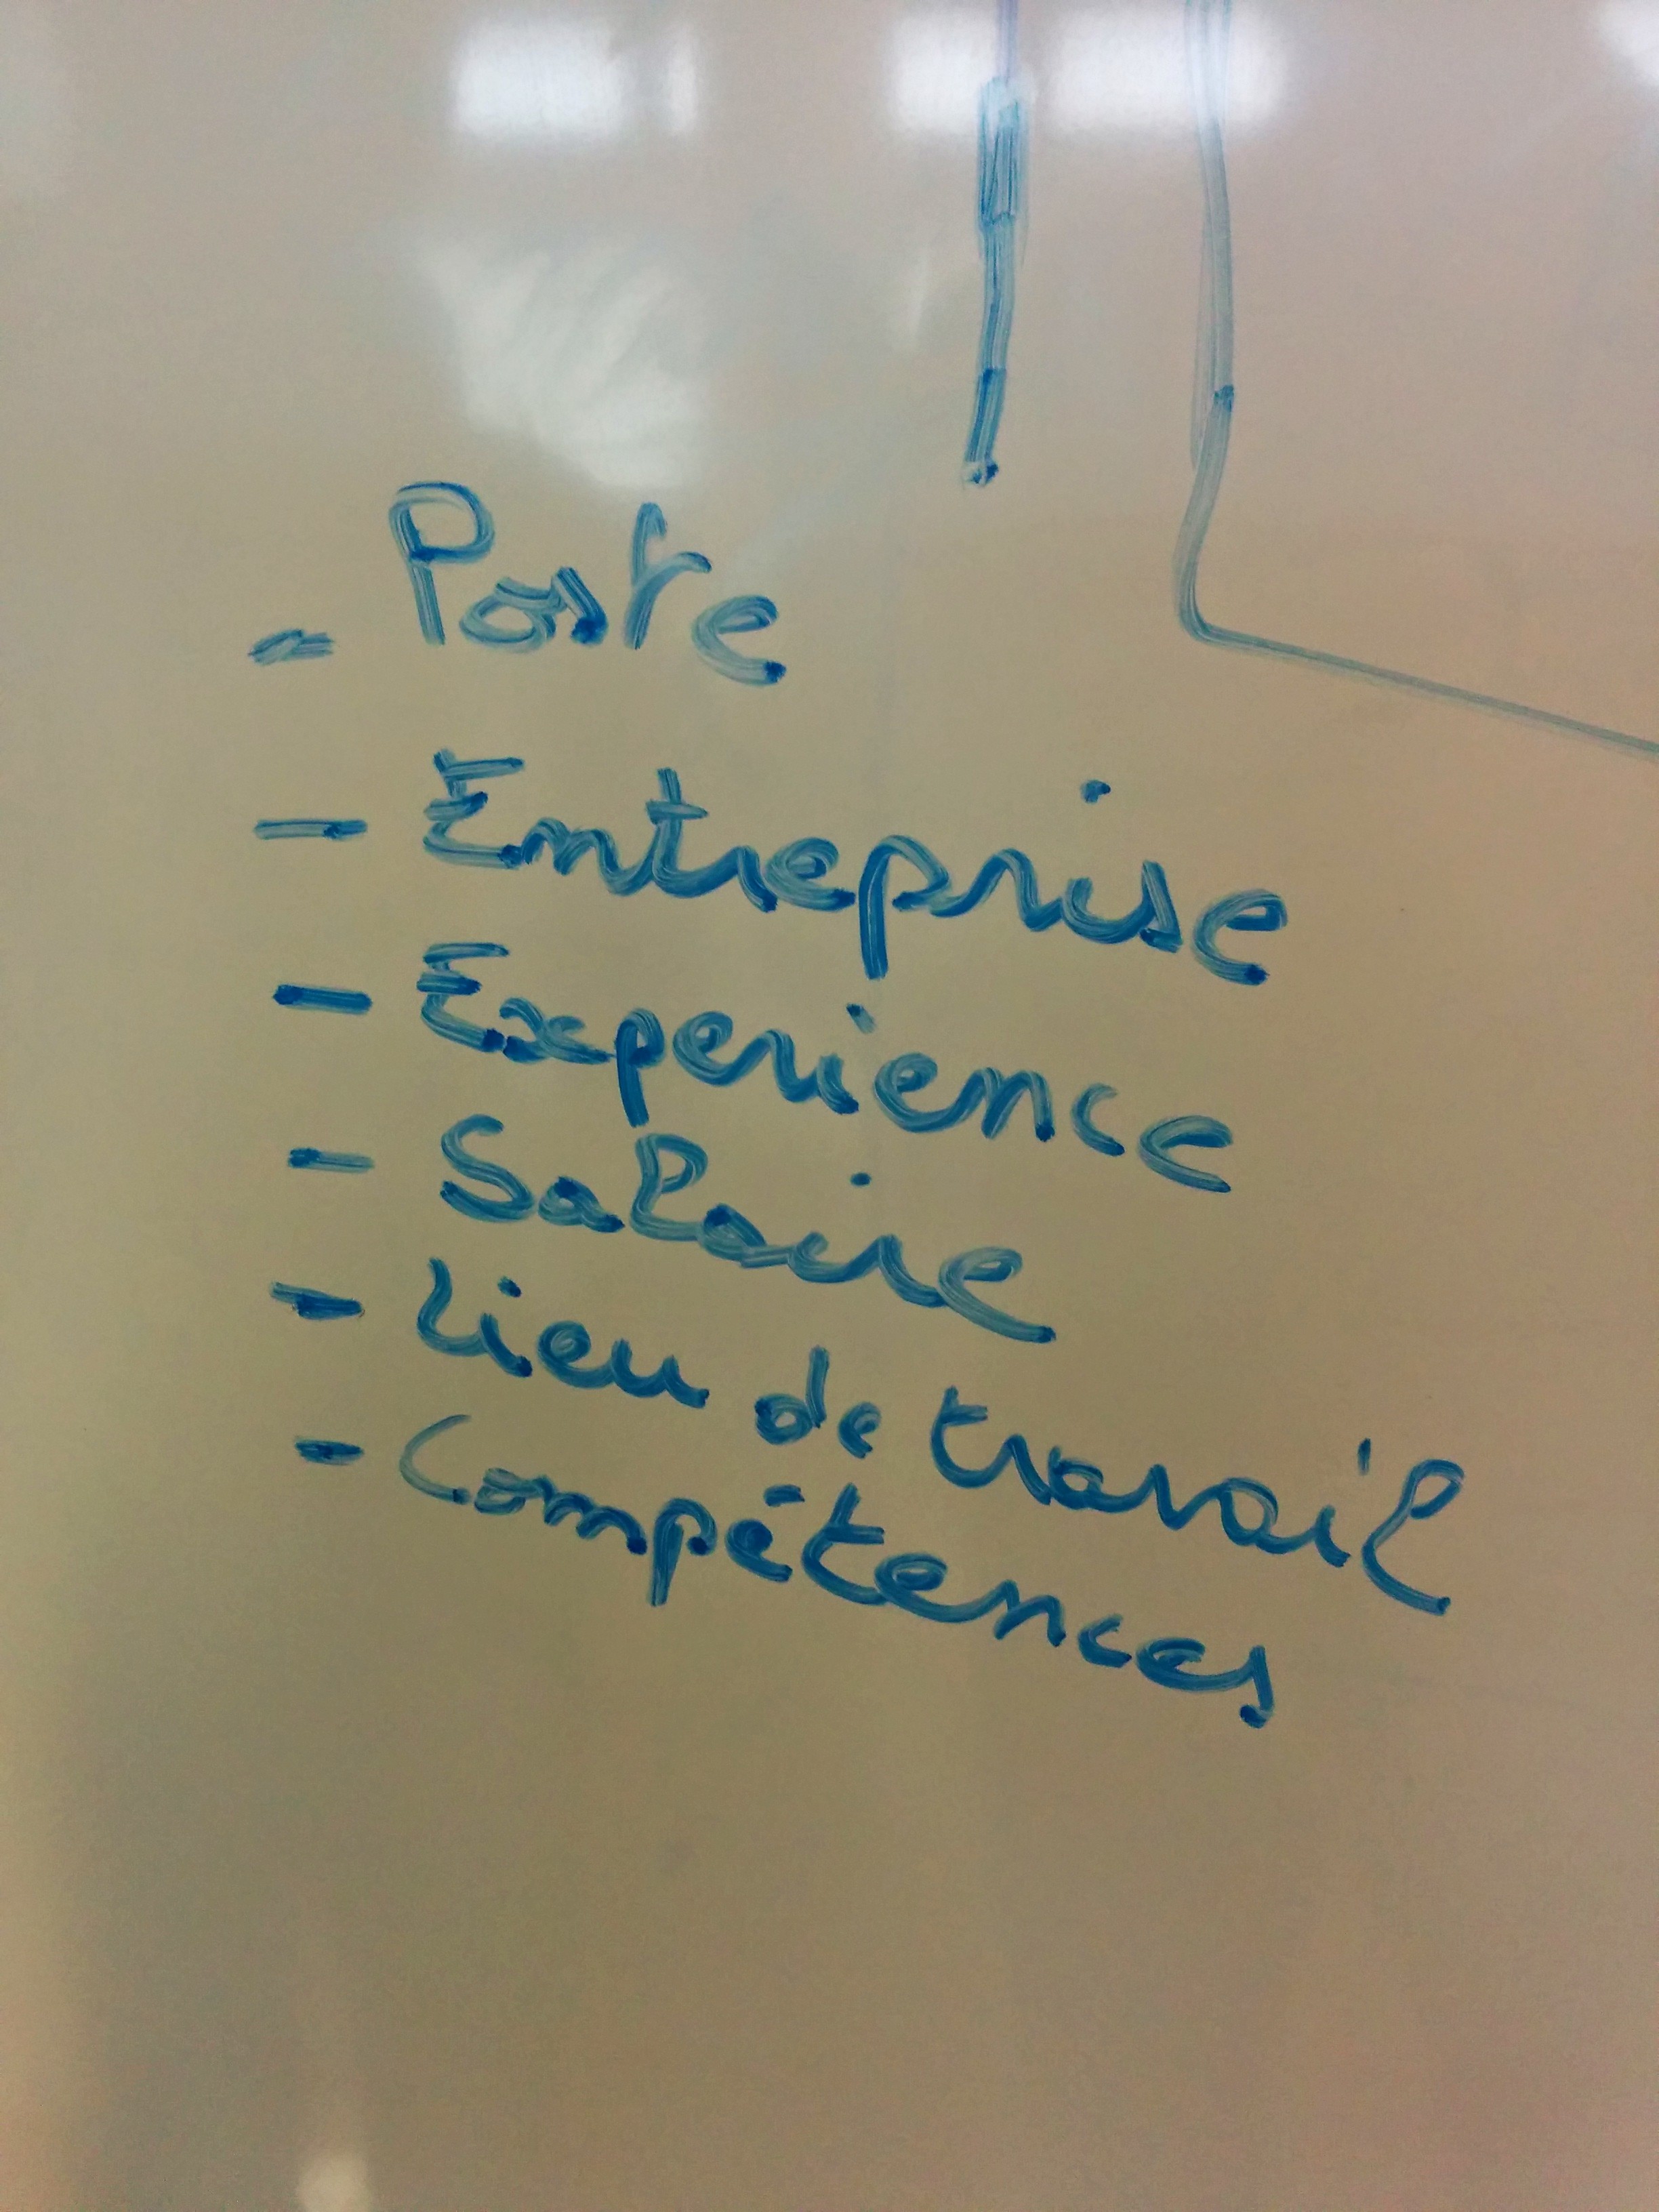 - Poste
- Entreprise
- Experience
- Salaire
- lieu de travail
- Compétences